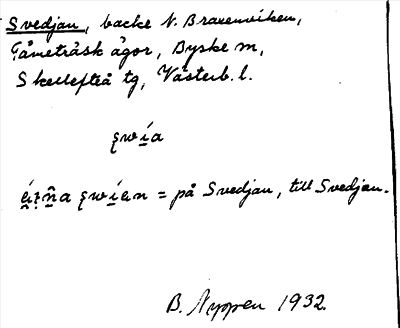 Svedjan, backe N. Braxenviken,
Gåmeträsk ägor, Byske sn,
Skellefteå tg, Västerb. l.
= på Svedjan, till Svedjan.
B. Nyppen 1932.